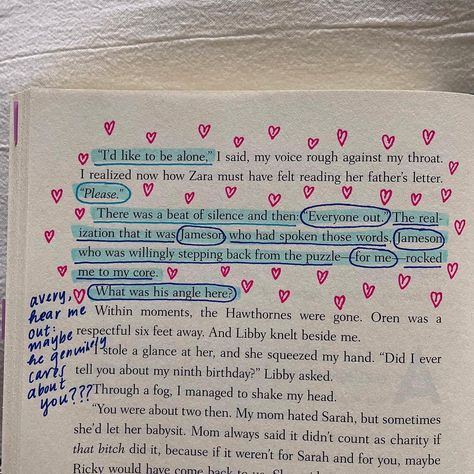 "I'd like to be alone," I said, my voice rough against my throat.
I realized now how Zara must have felt reading her father's letter.
"Please."
There was a beat of silence and then: "Everyone out." The real-
ization that it was Jameson who had spoken those words, Jameson
who was willingly stepping back from the puzzle—for me—rocked
me to my core.
What was his angle here?
Within moments, the Hawthornes were gone. Oren was a
respectful six feet away. And Libby knelt beside me.
I stole a glance at her, and she squeezed my hand. "Did I ever
tell you about my ninth birthday?" Libby asked.
Through a fog, I managed to shake my head.
"You were about two then. My mom hated Sarah, but sometimes
she'd let her babysit. Mom always said it didn't count as charity if
that bitch did it, because if it weren't for Sarah and for you, maybe
Ricky would have come back to us. She
avery,
hear me
out:
maybe
he genuinely
cares
about
you???